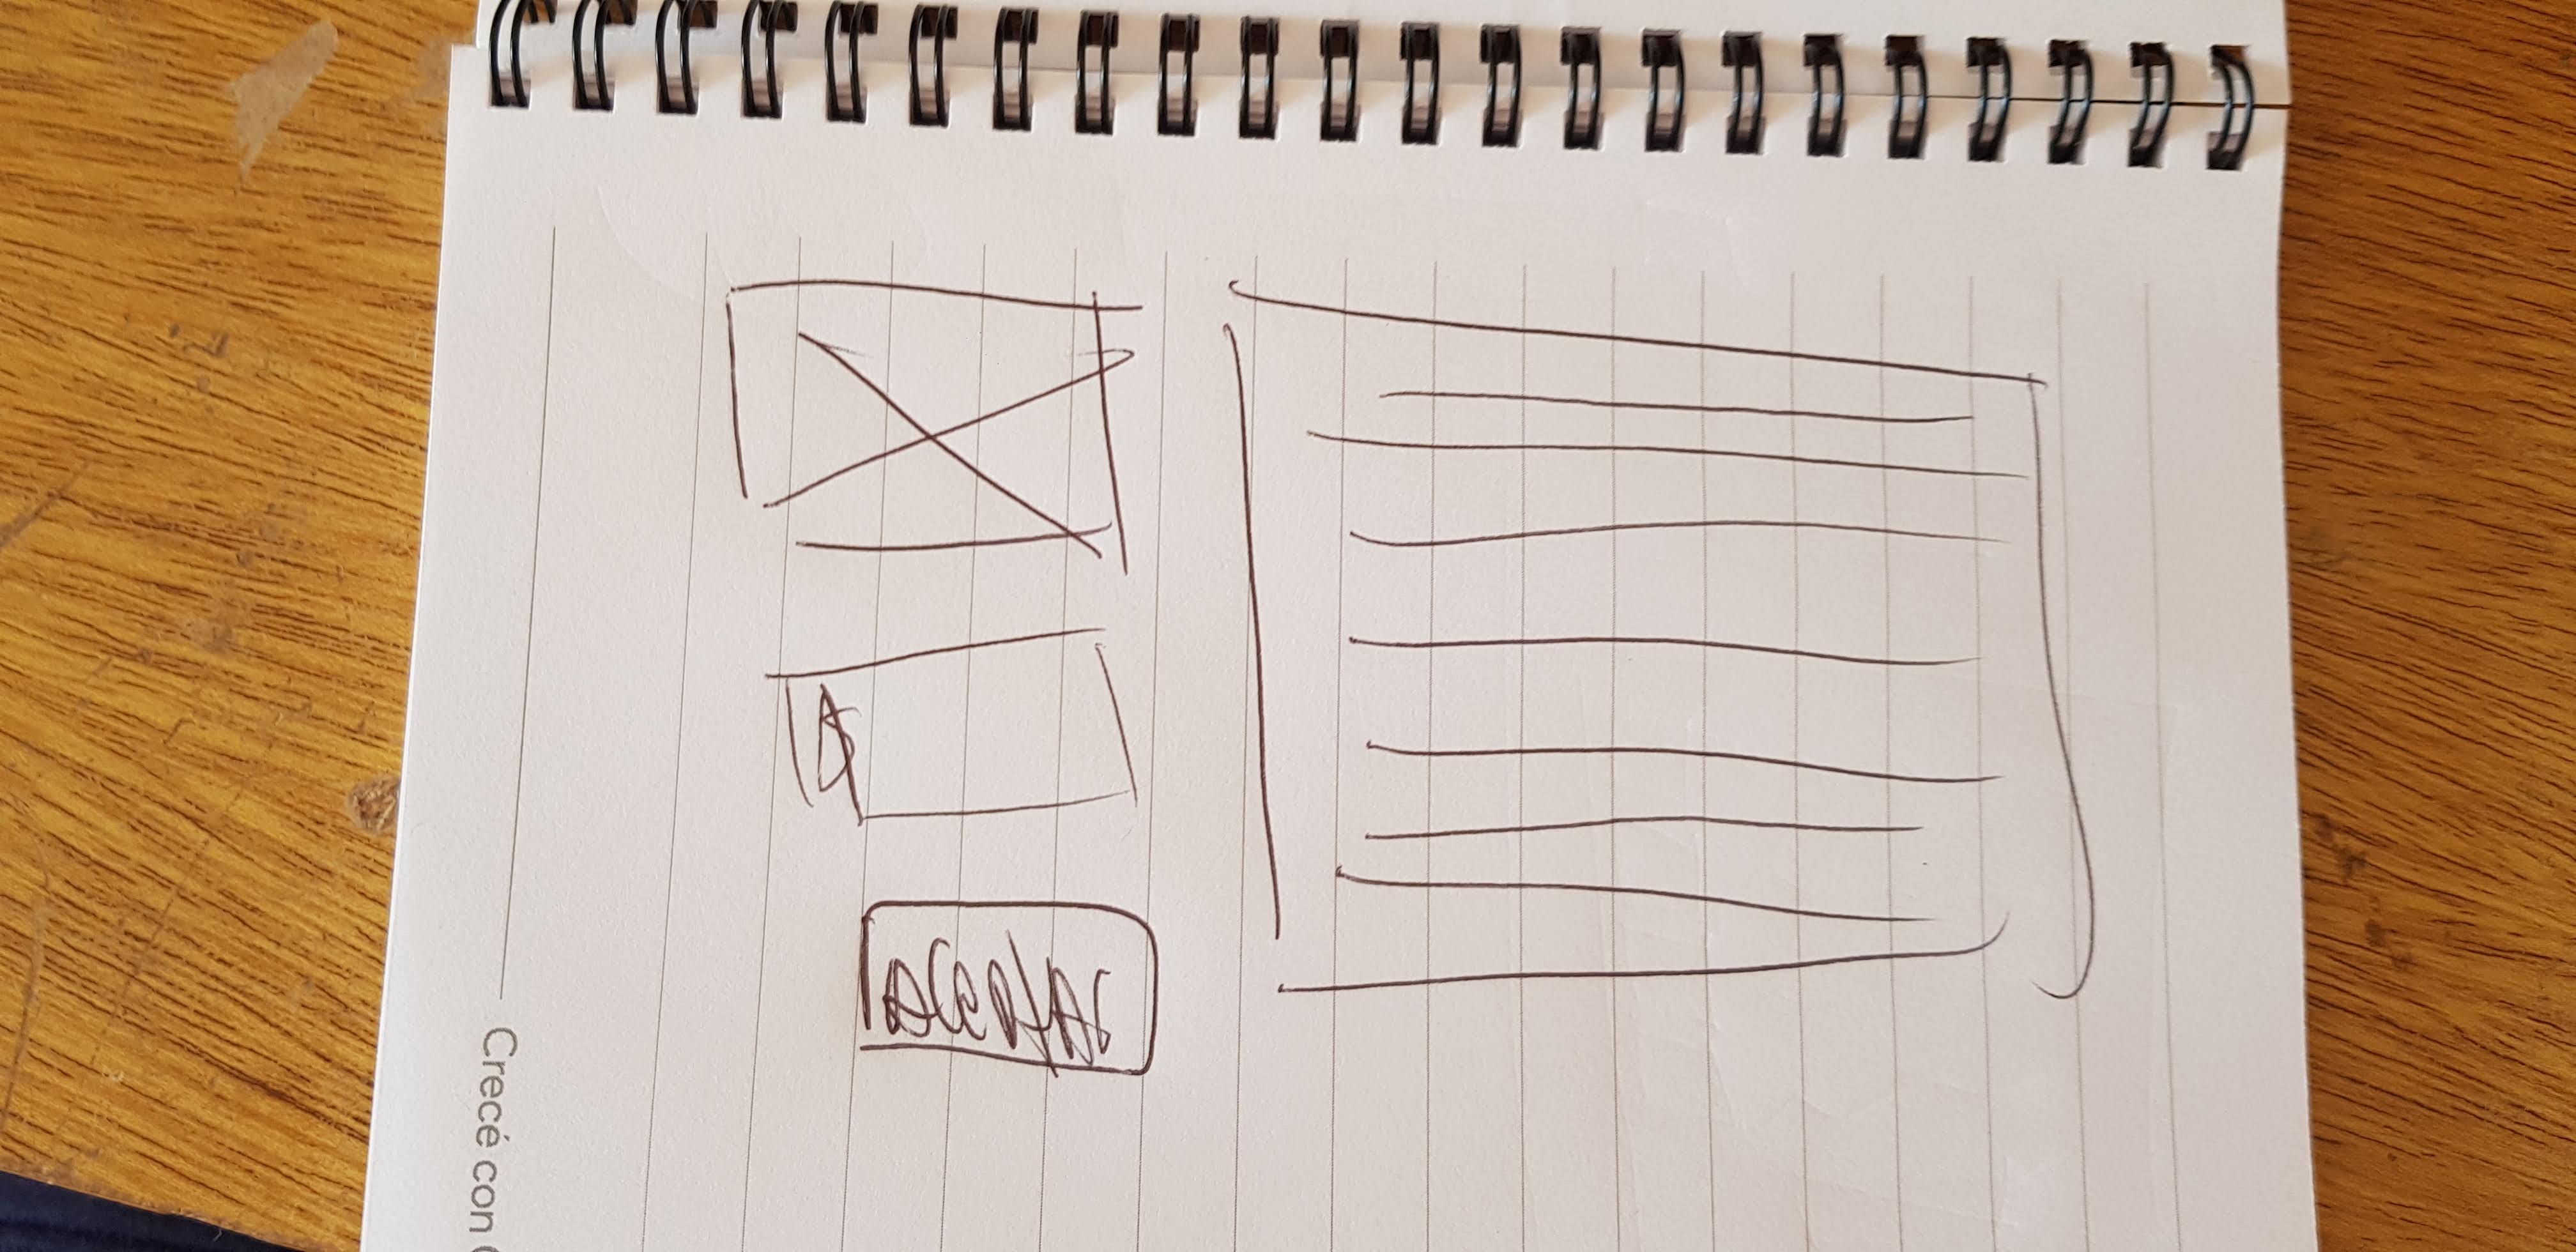 $
Aceptar
Crecé con